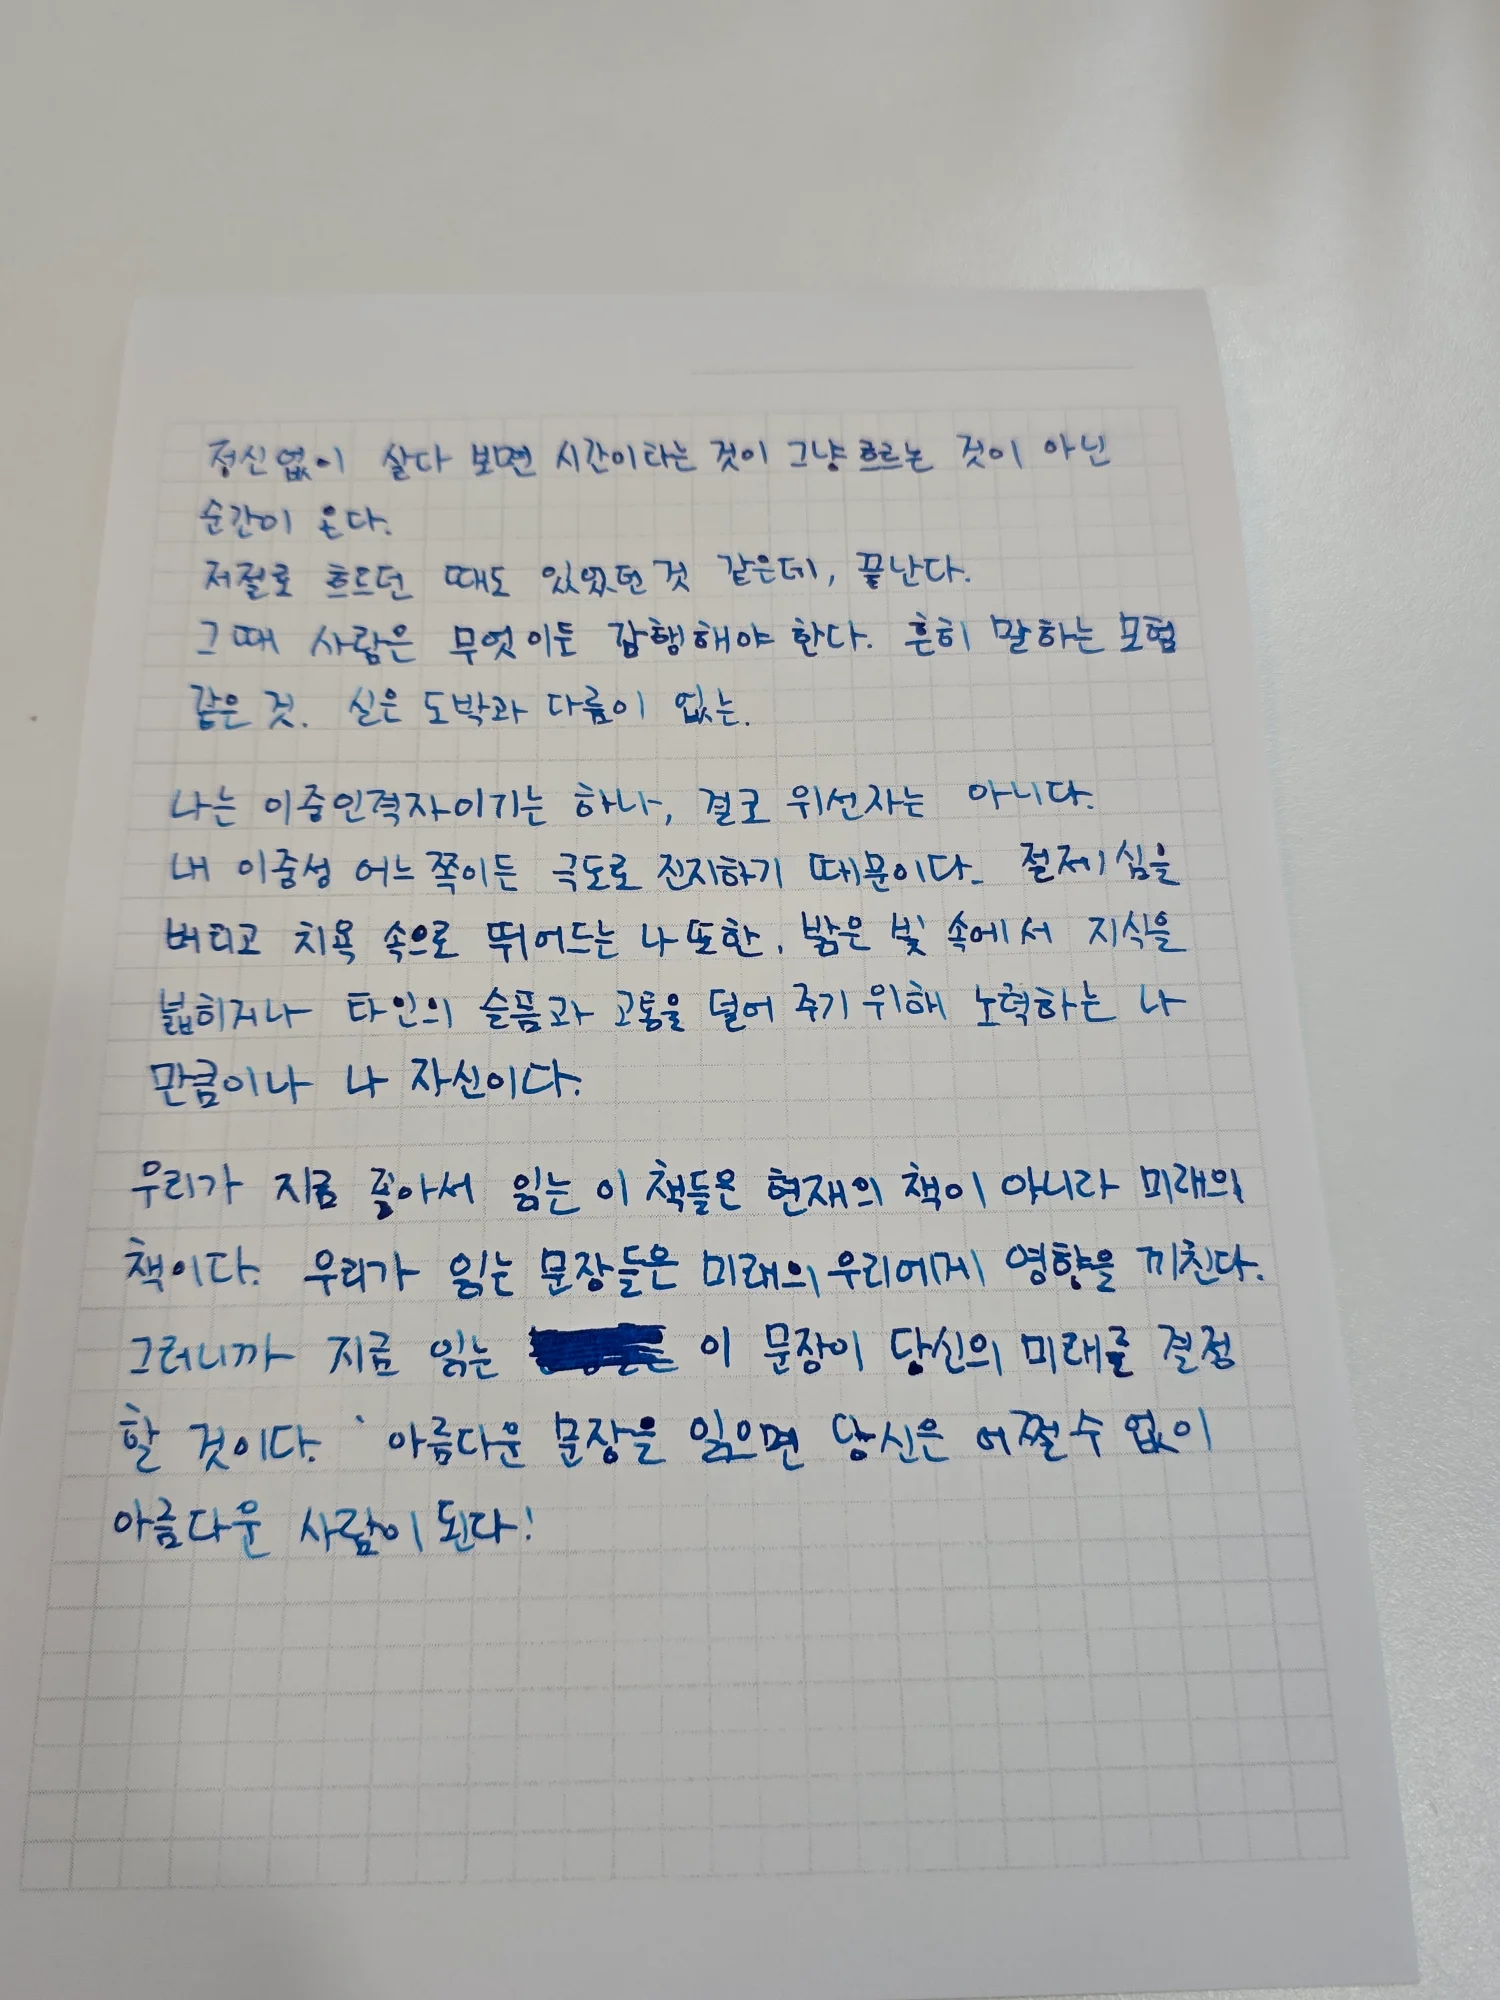 정신없이 살다 보면 시간이라는 것이 그냥 흐르는 것이 아닌
순간이 온다.
저절로 흐르던 때도 있었던 것 같은데, 끝난다.
그때 사람은 무엇이든 감행해야 한다. 흔히 말하는 모험
같은 것. 실은 도박과 다름이 없는.
나는 이중인격자이기는 하나, 결코 위선자는 아니다.
내 이중성 어느 쪽이든 극도로 진지하기 때문이다. 절제심을
버리고 치욕 속으로 뛰어드는 나 또한, 밝은 빛 속에서 지식을
넓히거나 타인의 슬픔과 고통을 덜어 주기 위해 노력하는 나
만큼이나 나 자신이다.
우리가 지금 좋아서 읽는 이 책들은 현재의 책이 아니라 미래의
책이다. 우리가 읽는 문장들은 미래의 우리에게 영향을 끼친다.
그러니까 지금 읽는 이 문장이 당신의 미래를 결정
할 것이다. 아름다운 문장을 읽으면 당신은 어쩔 수 없이
아름다운 사람이 된다!